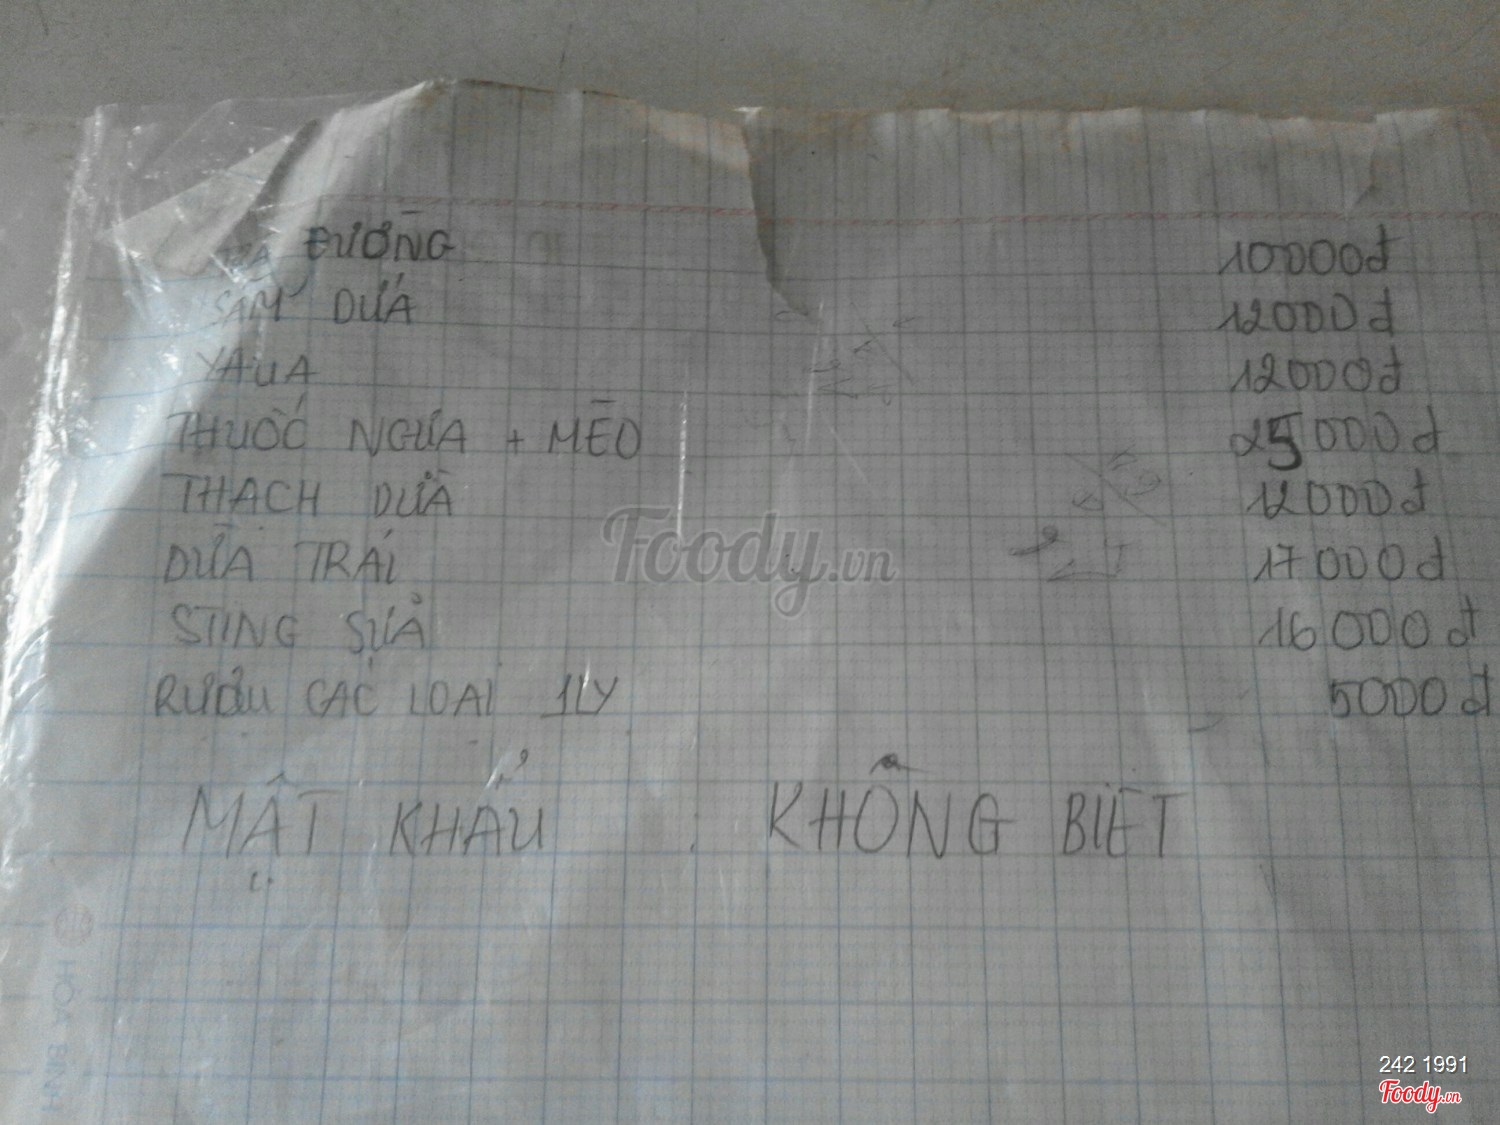 TRÀ ĐƯỜNG 10000đ
SÂM DỨA 12000đ
YAUA 12000đ
THUỐC NGỰA + MÈO 25000đ
THẠCH DỪA 12000đ
DỪA TRÁI 17000đ
STING SỮA 16000đ
RƯỢU CÁC LOẠI 1LY 5000đ
Foody.vn
MẬT KHẨU : KHÔNG BIẾT
HÒA BÌNH
242 1991
Foody.vn